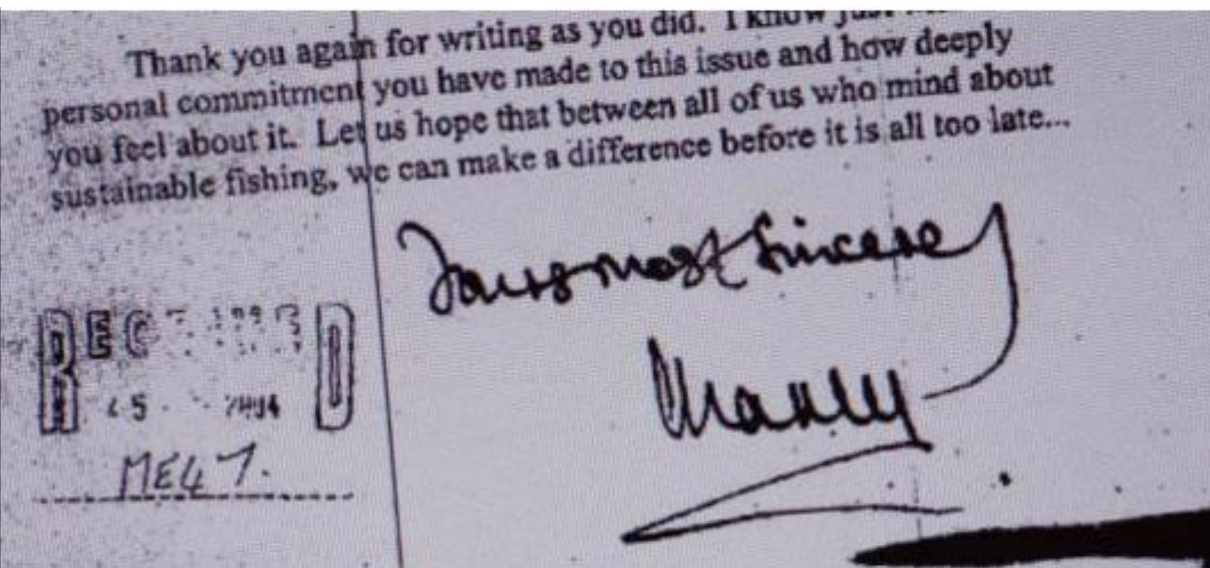 Thank you again for writing as you did. I know just
personal commitment you have made to this issue and how deeply
you feel about it. Let us hope that between all of us who mind about
sustainable fishing, we can make a difference before it is all too late...
Yours most sincerely
REC D
25
ME47.